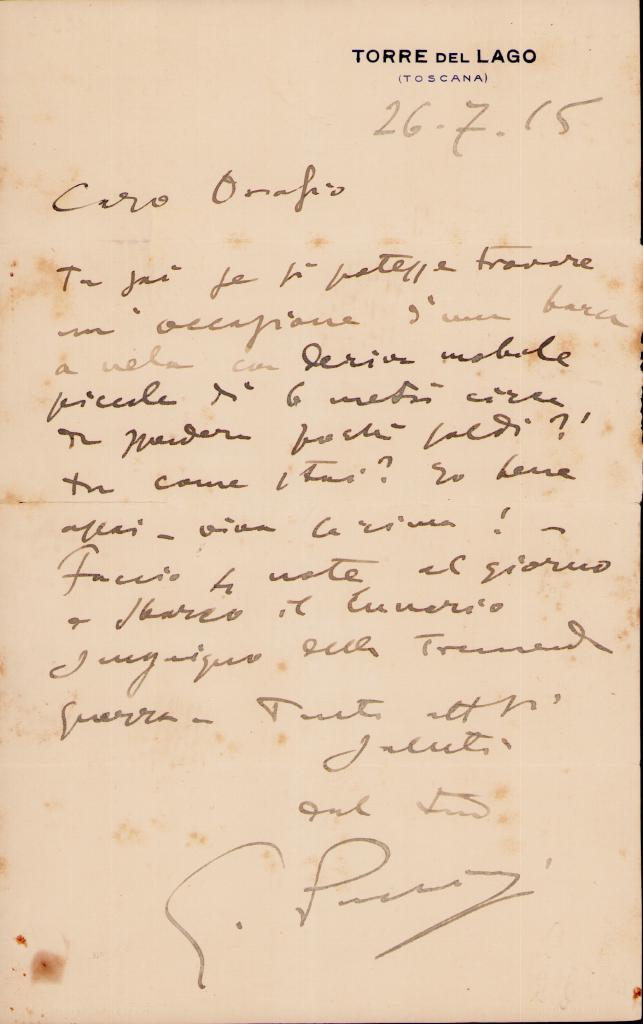 TORRE DEL LAGO
(TOSCANA)
26.7.15
Caro Orazio
Tu sai se si potesse trovare
un' occasione d'una barca
a vela con deriva mobile
piccola di 6 metri circa
da spendere pochi soldi?!
tu come stai? Io bene
assai - viva la rima! -
Faccio 4 note al giorno
e sbarco il lunario
sanguigno della tremenda
guerra - Tanti aff si
saluti
dal tuo
G. Puccini